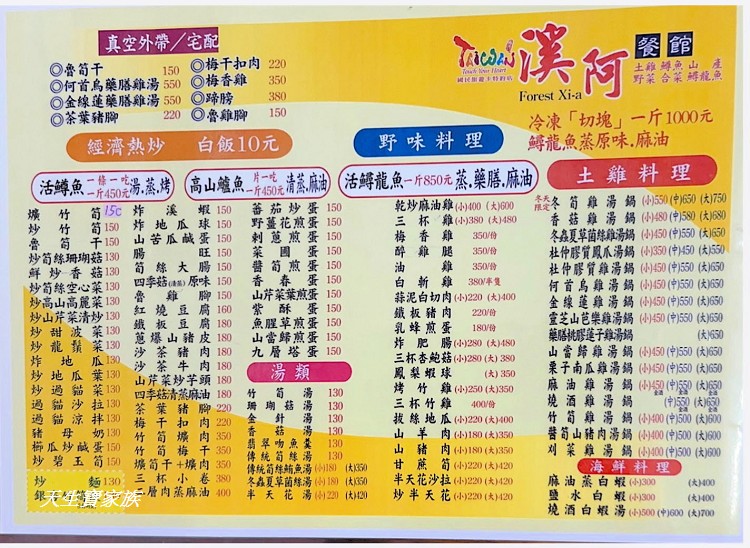 真空外帶／宅配
◎魯筍干 150
◎何首烏藥膳雞湯 550
◎金線蓮藥膳雞湯 550
◎茶葉豬腳 220
◎梅干扣肉 220
◎梅香雞 350
◎蹄膀 380
◎魯雞腳 150
TAIWAN
Touch Your Heart
國民旅遊卡特約店
溪阿 餐館
Forest Xi-a
土雞 鱒魚 山產
野菜 合菜 鱘龍魚
冷凍「切塊」一斤1000元
鱘龍魚蒸原味.麻油
經濟熱炒 白飯10元
活鱒魚 一條一吃 一斤450元 湯.蒸.烤
高山鱸魚 片一吃 一斤450元 清蒸.麻油
壙竹筍 150
炒竹筍 110
魯筍干 110
炒筍絲珊瑚菇 130
鮮炒香菇 130
炒筍絲空心菜 130
炒高山高麗菜 130
炒山芹菜清炒 130
炒甜波菜 130
炒龍鬚菜 130
炸地瓜 130
炒地瓜葉 130
炒過貓菜 130
過貓沙拉 130
過貓涼拌 130
豬母奶 130
櫛瓜炒鹹蛋 150
炒碧玉筍 150
炒麵
炸溪蝦 150
炸地瓜球 150
山苦瓜鹹蛋 150
腸旺 150
筍絲大腸 150
四季菇(清蒸)原味 150
魯雞腳 150
紅燒豆腐 160
鐵板豆腐 180
蔥爆山豬皮 180
沙茶豬肉 180
沙茶牛肉 180
山芹菜炒芋頭 180
四季菇清蒸麻油 180
茶葉豬腳 220
梅干扣肉 220
竹筍壙肉 350
竹筍梅干 350
壙筍干+壙肉 350
三杯小卷 380
二層肉蒸麻油 400
蕃茄炒蛋 150
野薑花煎蛋 150
剌蔥煎蛋 150
菜圃蛋 150
醬筍煎蛋 150
香春蛋 150
山芹菜葉煎蛋 150
紫酥蛋 150
魚腥草煎蛋 150
山當歸煎蛋 150
九層塔蛋 150
湯類
竹筍湯 130
珊瑚菇湯 130
金針湯 130
香菇湯 130
翡翠吻魚羹 130
傳統筍絲湯 130
傳統筍絲鮪魚湯 (小)180 (大)350
冬蟲夏草菌絲湯 (小)180 (大)350
半天花湯 (小)220 (大)420
野味料理
活鱘龍魚 一斤850元 蒸.藥膳.麻油
乾炒麻油雞 (小)400 (大)600
三杯雞 (小)380 (大)480
梅香雞 350/份
醉雞腿 350/份
油雞 350/份
白斬雞 380/半隻
蒜泥白切肉 (小)220 (大)400
鐵板豬肉 220/份
乳蜂煎蛋 180/份
炸肥腸 (小)280 (大)480
三杯杏鮑菇 (小)280 (大)380
鳳梨蝦球 (大)350
烤竹雞 (小)250 (大)450
三杯竹雞 400/份
拔絲地瓜 (小)220 (大)400
山羊肉 (小)180 (大)350
山豬肉 (小)180 (大)350
甘蔗筍 (小)220 (大)420
半天花沙拉 (小)220 (大)420
炒半天花 (小)220 (大)420
土雞料理
冬天限定 冬筍雞湯鍋 (小)550 (中)650 (大)750
香菇雞湯鍋 (小)480 (中)580 (大)680
冬蟲夏草菌絲雞湯鍋 (小)450 (中)550 (大)650
杜仲膠質鳳爪湯鍋 (小)350 (中)450 (大)550
杜仲膠質雞湯鍋 (小)450 (中)550 (大)650
何首烏雞湯鍋 (小)450 (中)550 (大)650
金線蓮雞湯鍋 (小)450 (中)550 (大)650
靈芝山芭樂雞湯鍋 (小)450 (中)550 (大)650
藥膳桃膠蓮子雞湯鍋 (大)650
山當歸雞湯鍋 (小)450 (中)550 (大)650
栗子南瓜雞湯鍋 (小)450 (中)550 (大)650
麻油雞湯鍋 (小)450 (中)550 (大)650
燒酒雞湯鍋 (中)550 (大)650
竹筍雞湯鍋 (小)400 (中)500 (大)600
醬筍山豬肉湯鍋 (小)400 (中)500 (大)600
刈菜雞湯鍋 (小)400 (中)500 (大)600
海鮮料理
麻油蒸白蝦 (小)300 (大)400
鹽水白蝦 (小)300 (大)400
燒酒白蝦湯 (小)500 (中)600 (大)700
天生寶家族